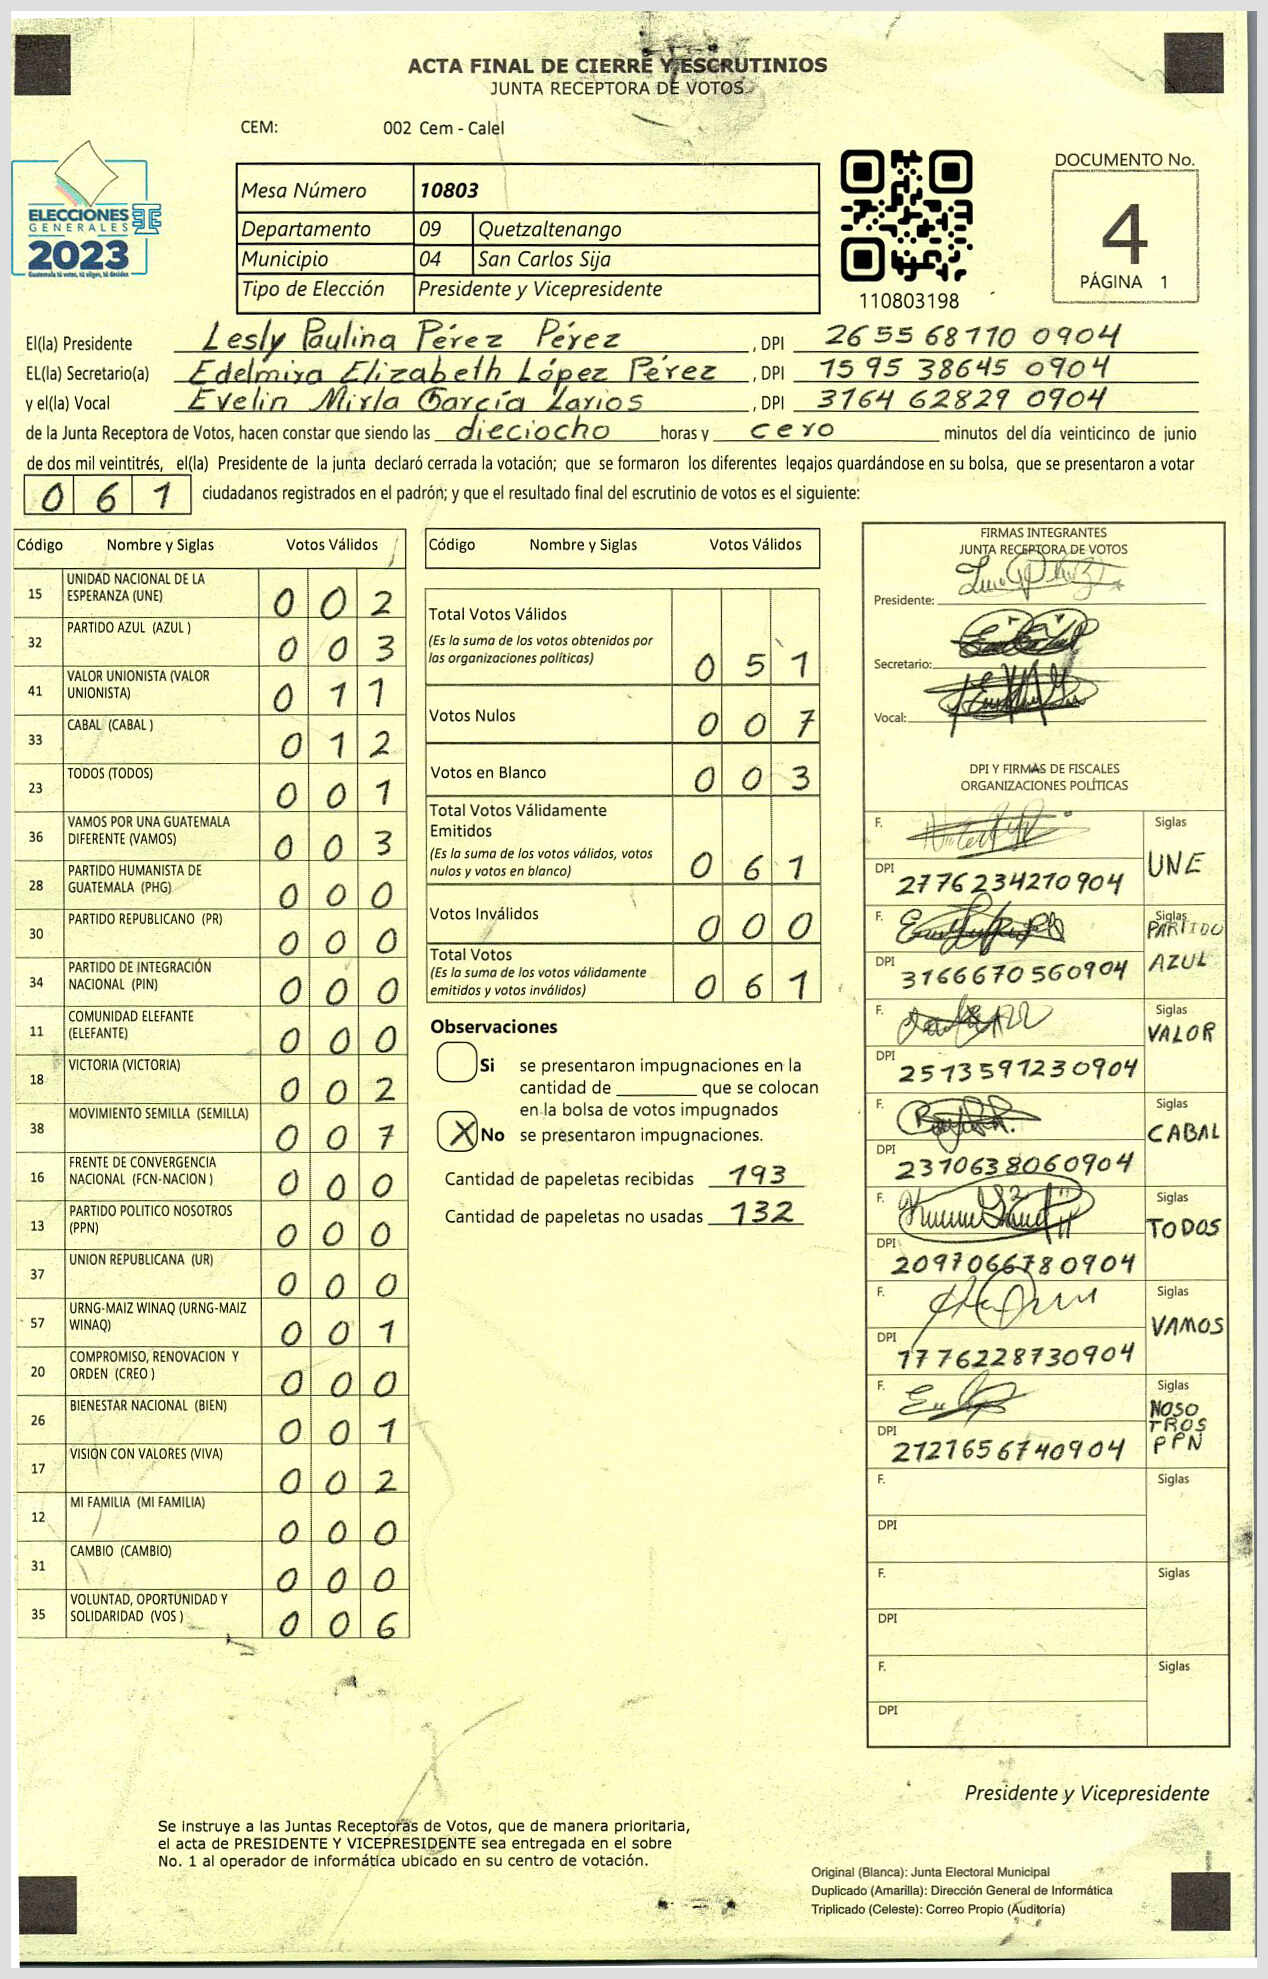 ACTA FINAL DE CIERRE Y ESCRUTINIOS
JUNTA RECEPTORA DE VOTOS
CEM: 002 Cem - Calel
ELECCIONES
GENERALES
2023
Guatemala tú votas, tú eliges, tú decides
Mesa Número 10803
Departamento 09 Quetzaltenango
Municipio 04 San Carlos Sija
Tipo de Elección Presidente y Vicepresidente
110803198
DOCUMENTO No.
4
PÁGINA 1
El(la) Presidente Lesly Paulina Pérez Pérez , DPI 2655 68110 0904
EL(la) Secretario(a) Edelmira Elizabeth López Pérez , DPI 1595 38645 0904
y el(la) Vocal Evelin Mirla García Larios , DPI 3164 62829 0904
de la Junta Receptora de Votos, hacen constar que siendo las dieciocho horas y cero minutos del día veinticinco de junio
de dos mil veintitrés, el(la) Presidente de la junta declaró cerrada la votación; que se formaron los diferentes legajos guardándose en su bolsa, que se presentaron a votar
061 ciudadanos registrados en el padrón; y que el resultado final del escrutinio de votos es el siguiente:
Código Nombre y Siglas Votos Válidos
15 UNIDAD NACIONAL DE LA
ESPERANZA (UNE) 002
32 PARTIDO AZUL (AZUL ) 003
41 VALOR UNIONISTA (VALOR
UNIONISTA) 011
33 CABAL (CABAL ) 012
23 TODOS (TODOS) 001
36 VAMOS POR UNA GUATEMALA
DIFERENTE (VAMOS) 003
28 PARTIDO HUMANISTA DE
GUATEMALA (PHG) 000
30 PARTIDO REPUBLICANO (PR) 000
34 PARTIDO DE INTEGRACIÓN
NACIONAL (PIN) 000
11 COMUNIDAD ELEFANTE
(ELEFANTE) 000
18 VICTORIA (VICTORIA) 002
38 MOVIMIENTO SEMILLA (SEMILLA) 007
16 FRENTE DE CONVERGENCIA
NACIONAL (FCN-NACION ) 000
13 PARTIDO POLITICO NOSOTROS
(PPN) 000
37 UNION REPUBLICANA (UR) 000
57 URNG-MAIZ WINAQ (URNG-MAIZ
WINAQ) 001
20 COMPROMISO, RENOVACION Y
ORDEN (CREO ) 000
26 BIENESTAR NACIONAL (BIEN) 001
17 VISION CON VALORES (VIVA) 002
12 MI FAMILIA (MI FAMILIA) 000
31 CAMBIO (CAMBIO) 000
35 VOLUNTAD, OPORTUNIDAD Y
SOLIDARIDAD (VOS ) 006
Código Nombre y Siglas Votos Válidos
Total Votos Válidos
(Es la suma de los votos obtenidos por
las organizaciones políticas) 051
Votos Nulos 007
Votos en Blanco 003
Total Votos Válidamente
Emitidos
(Es la suma de los votos válidos, votos
nulos y votos en blanco) 061
Votos Inválidos 000
Total Votos
(Es la suma de los votos válidamente
emitidos y votos inválidos) 061
Observaciones
Si se presentaron impugnaciones en la
cantidad de ________ que se colocan
en la bolsa de votos impugnados
X No se presentaron impugnaciones.
Cantidad de papeletas recibidas 193
Cantidad de papeletas no usadas 132
FIRMAS INTEGRANTES
JUNTA RECEPTORA DE VOTOS
Presidente:
Secretario:
Vocal:
DPI Y FIRMAS DE FISCALES
ORGANIZACIONES POLÍTICAS
F. Siglas
DPI 2776234210904 UNE
F. Siglas
DPI 3166670560904 PARTIDO
AZUL
F. Siglas
DPI 2513591230904 VALOR
F. Siglas
DPI 2310638060904 CABAL
F. Siglas
DPI 2097066780904 TODOS
F. Siglas
DPI 1776228730904 VAMOS
F. Siglas
DPI 2121656740904 NOSO
TROS
PPN
F. Siglas
DPI
F. Siglas
DPI
F. Siglas
DPI
Presidente y Vicepresidente
Se instruye a las Juntas Receptoras de Votos, que de manera prioritaria,
el acta de PRESIDENTE Y VICEPRESIDENTE sea entregada en el sobre
No. 1 al operador de informática ubicado en su centro de votación.
Original (Blanca): Junta Electoral Municipal
Duplicado (Amarilla): Dirección General de Informática
Triplicado (Celeste): Correo Propio (Auditoría)